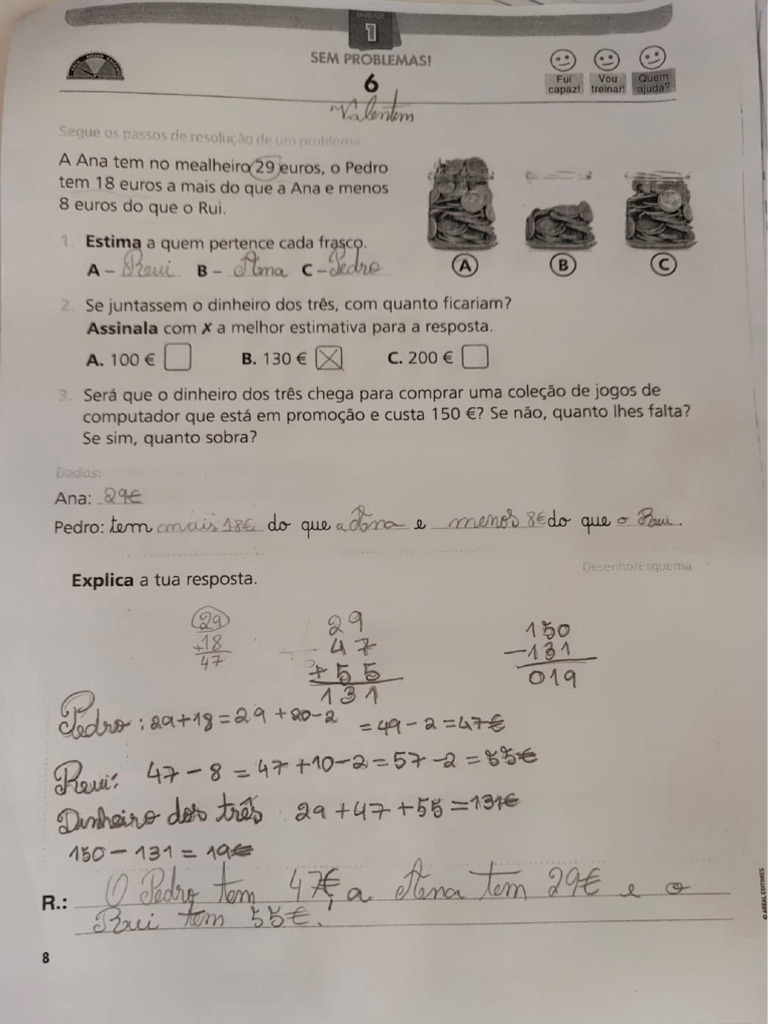 UNIDADE
1
SEM PROBLEMAS!
6
Fui capaz!
Vou treinar!
Quem ajuda?
Valentem
Segue os passos de resolução de um problema
A Ana tem no mealheiro 29 euros, o Pedro
tem 18 euros a mais do que a Ana e menos
8 euros do que o Rui.
1. Estima a quem pertence cada frasco.
A – Rui B – Ana C – Pedro
A B C
2. Se juntassem o dinheiro dos três, com quanto ficariam?
Assinala com ✗ a melhor estimativa para a resposta.
A. 100 € B. 130 € X C. 200 €
3. Será que o dinheiro dos três chega para comprar uma coleção de jogos de
computador que está em promoção e custa 150 €? Se não, quanto lhes falta?
Se sim, quanto sobra?
Dados:
Ana: 29€
Pedro: tem mais 18€ do que a Ana e menos 8€ do que o Rui.
Desenho/Esquema
Explica a tua resposta.
29
+18
47
29
47
+55
131
150
-131
019
Pedro: 29+18=29+20-2 =49-2=47€
Rui: 47-8=47+10-2=57-2=55€
Dinheiro dos três: 29+47+55=131€
150-131=19€
R.: O Pedro tem 47€, a Ana tem 29€ e o
Rui tem 55€!
8
© AREAL EDITORES